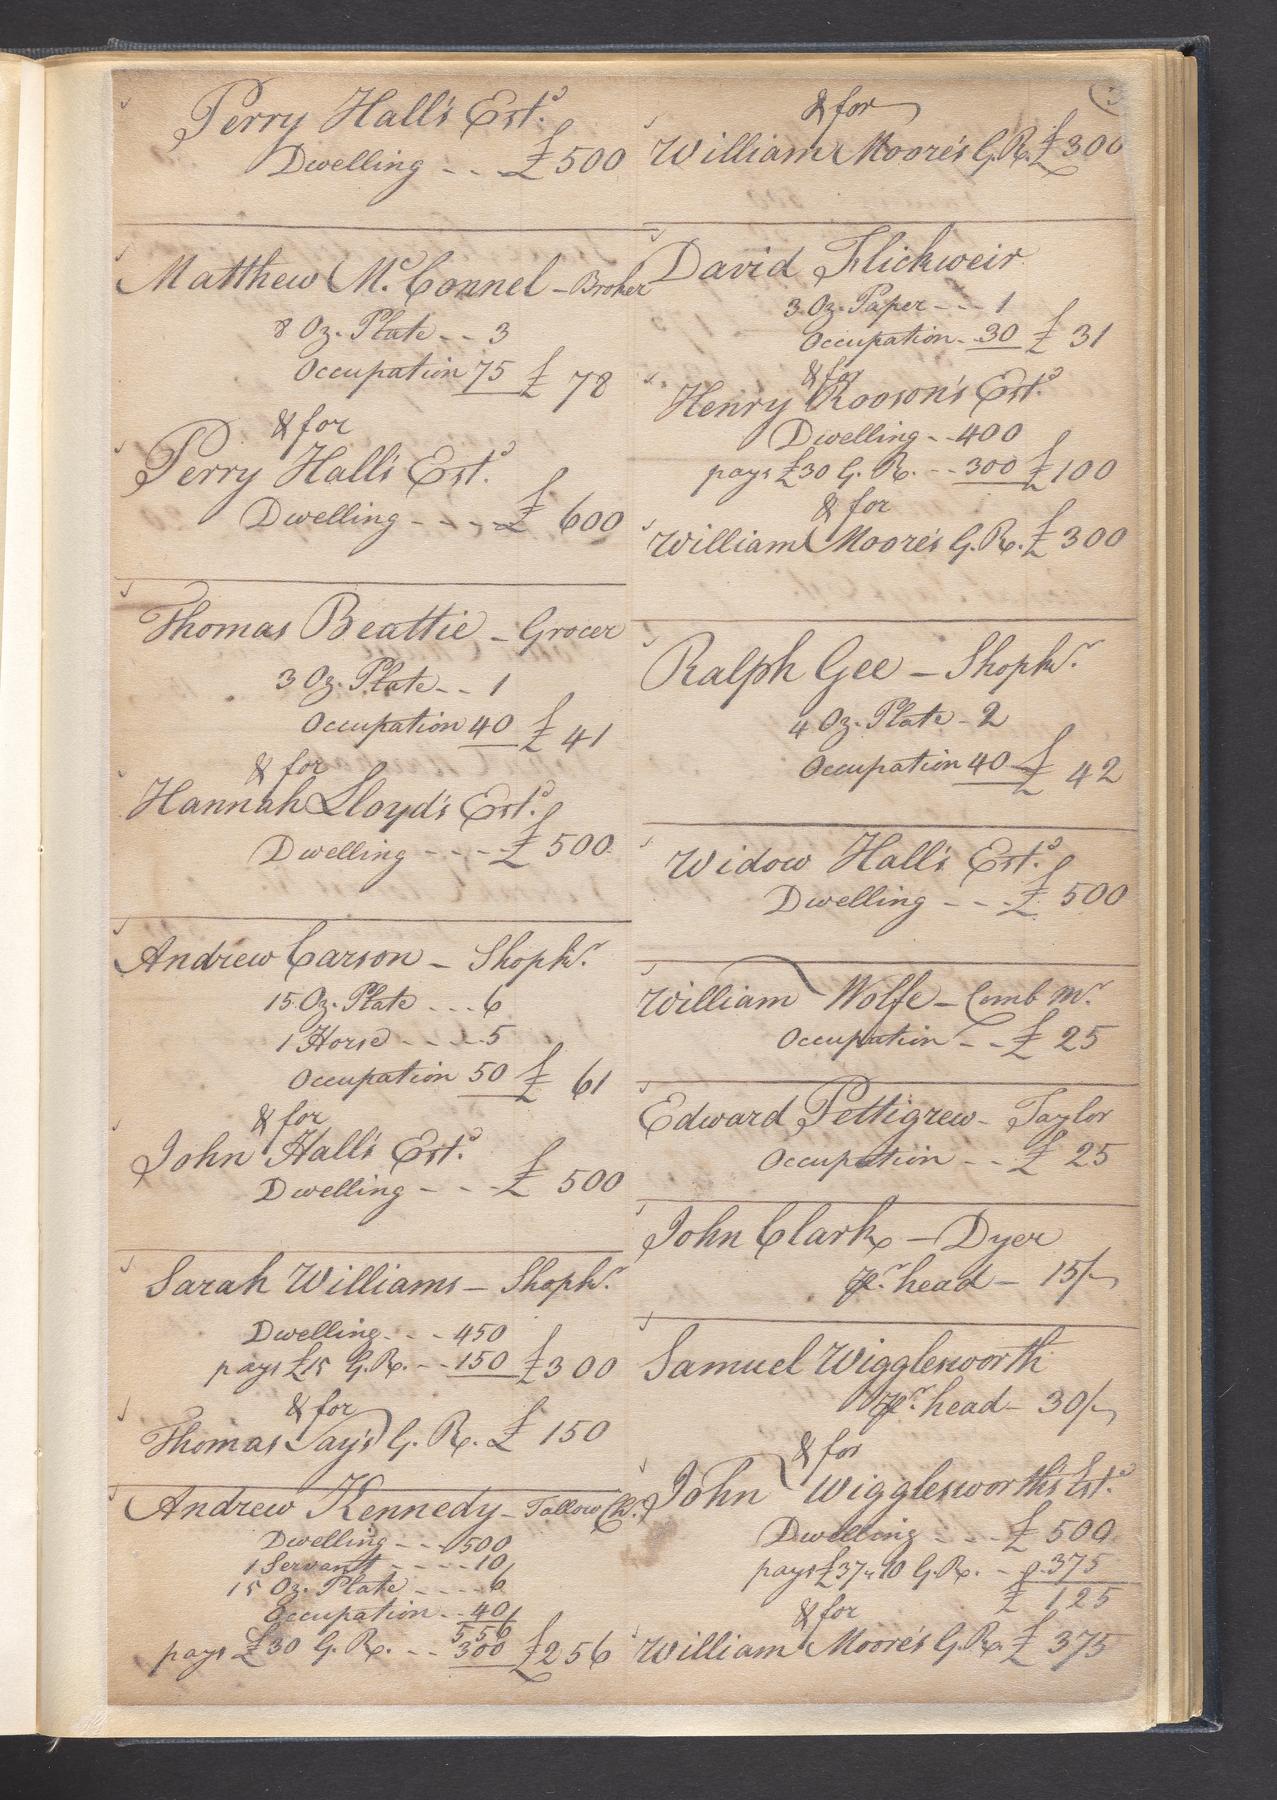 Perry Hall's Est.ᵈ
Dwelling - - - £ 500
Matthew M.ᶜConnel - Broker
8 Oz. Plate - - 3
Occupation 75 £ 78
& for
Perry Hall's Est.ᵈ
Dwelling - - - - £ 600
Thomas Beattie - Grocer
3 Oz. Plate - - 1
Occupation 40 £ 41
& for
Hannah Lloyd's Est.ᵈ
Dwelling - - - - £ 500
Andrew Carson - Shopk.ʳ
15 Oz. Plate - - - 6
1 Horse - - - - 5
Occupation 50 £ 61
& for
John Hall's Est.ᵈ
Dwelling - - - £ 500
Sarah Williams - Shopk.ʳ
Dwelling - - - 450
pays £15 G. R. - - 150 £ 300
& for
Thomas Say's G. R. £ 150
Andrew Kennedy - Tallow Ch.
Dwelling - - - 500
1 Servant - - - - 10
15 Oz. Plate - - - - 6
Occupation - - 40
556
pays £30 G. R. - - 300 £ 256
& for
William Moore's G. R. £ 300
David Flickweir
3 Oz. Paper - - - 1
Occupation - 30 £ 31
& for
Henry Rooson's Est.ᵈ
Dwelling - - 400
pays £30 G. R. - - 300 £ 100
& for
William Moore's G. R. £ 300
Ralph Gee - Shopk.ʳ
4 Oz. Plate - 2
Occupation 40 £ 42
Widow Hall's Est.ᵈ
Dwelling - - - £ 500
William Wolfe - Comb M.ʳ
Occupation - - £ 25
Edward Pettigrew - Taylor
Occupation - - £ 25
John Clark - Dyer
pr. head - 15/-
Samuel Wigglesworth
pr. head - 30/-
& for
John Wigglesworth's Est.ᵈ
Dwelling - - - £ 500
pays £37 " 10 G. R. - 375
£ 125
& for
William Moore's G. R. £ 375